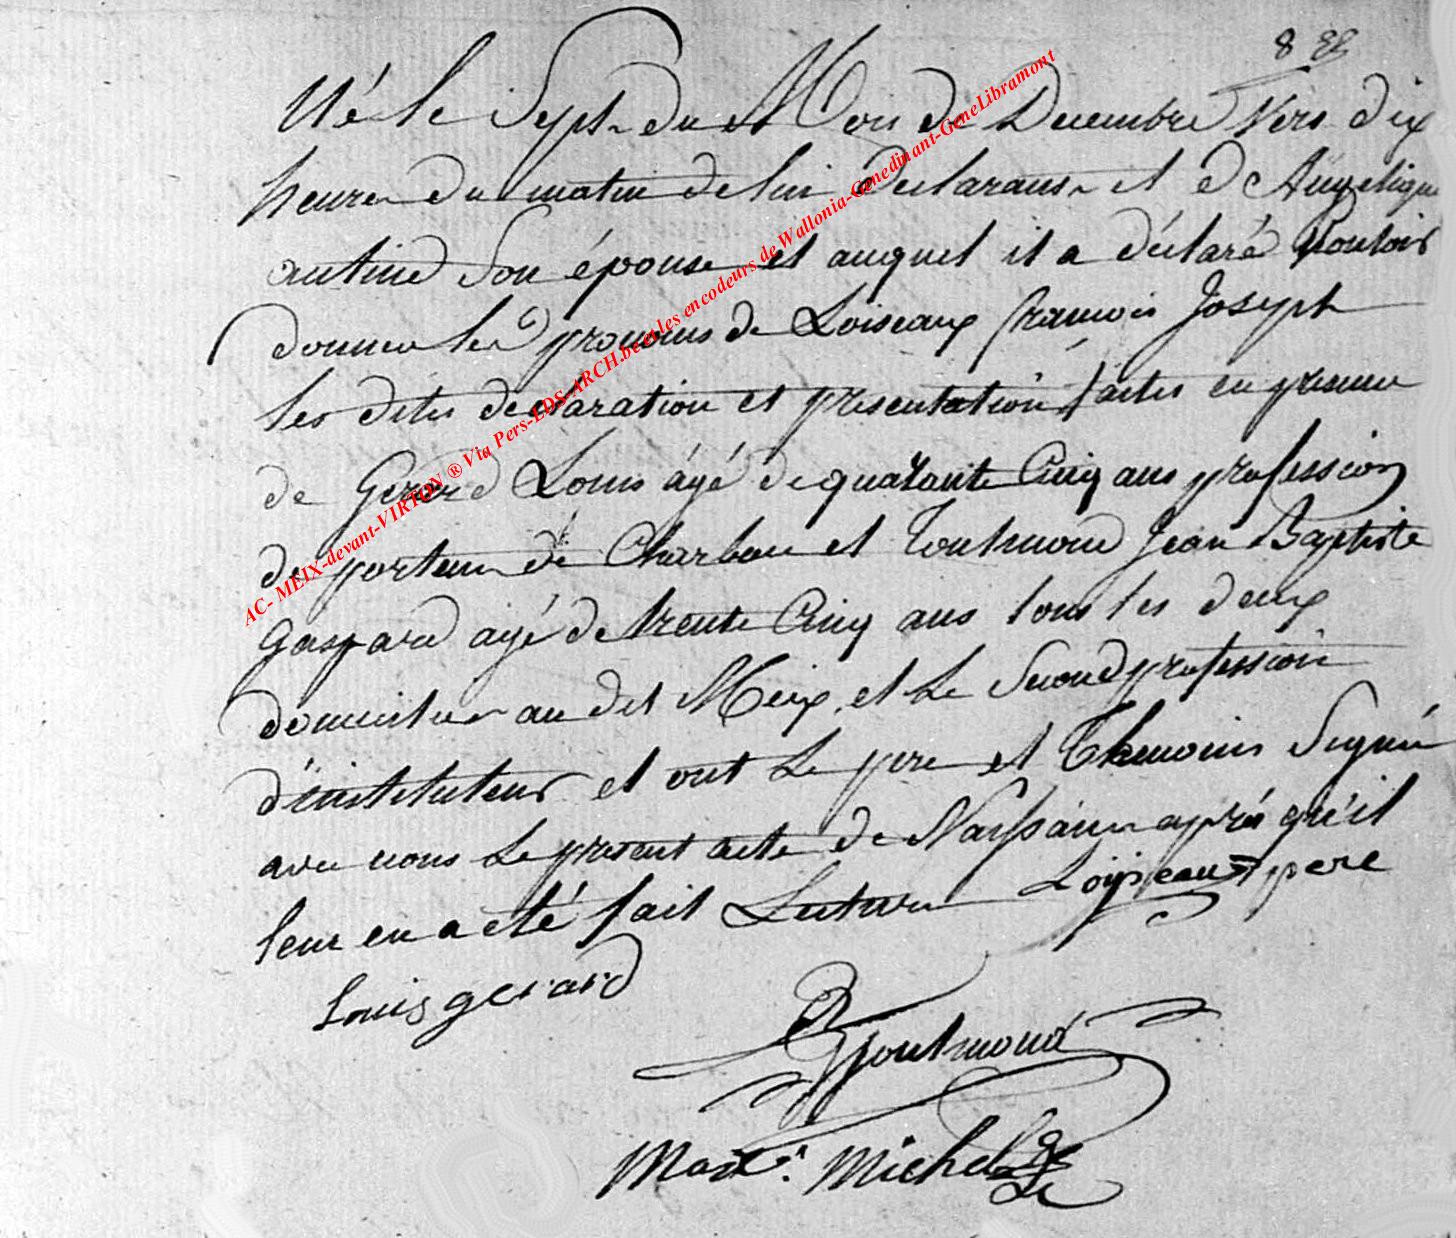 8
Né le Sept du Mois de Decembre Vers dix
heures du matin de lui declarant et d'Angelique
son épouse et auquel il a déclaré vouloir
donner les prenoms de Loiseaux francois Joseph
les dites declaration et presentation faites en presence
de Gerard Louis âgé de quarante Cinq ans profession
de porteur de Charbon et Toutmond Jean Baptiste
Gaspard agé de trente Cinq ans tous les deux
domicilies au dit Meix, et le Second profession
d'instituteur et ont le pere et themoins Signé
avec nous le present acte de Naissance après qu'il
leur en a été fait Lecture Loisseaux pere
Louis gerard
Toutmond
Michel
AC- MEIX-devant-VIRTON ® Via Pers-EDS-ARCH.be et les encodeurs de Wallonia-Genedinant-GeneLibramont